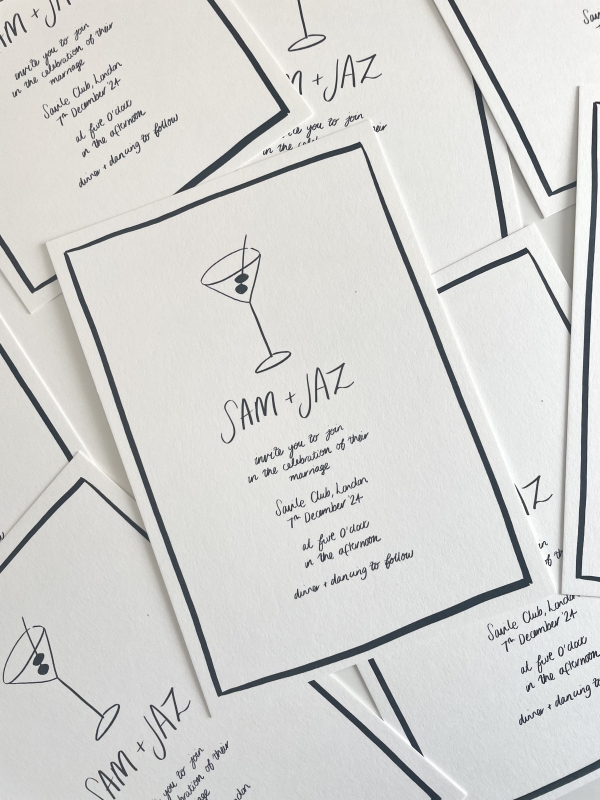 AM + JA
invite you to join
in the celebration of their
marriage
Savile Club, London
7th December '24
at five O'clock
in the afternoon
dinner + dancing to follow
M + JAZ
you to join
SAM + JAZ
invite you to join
in the celebration of their
marriage
Savile Club, London
7th December '24
at five O'clock
in the afternoon
dinner + dancing to follow
AZ
Savile Club, London
7th December '24
at five O'clock
in the afternoon
dinner + dancing to
SAM + JAZ
invite you to join
in the celebration of their